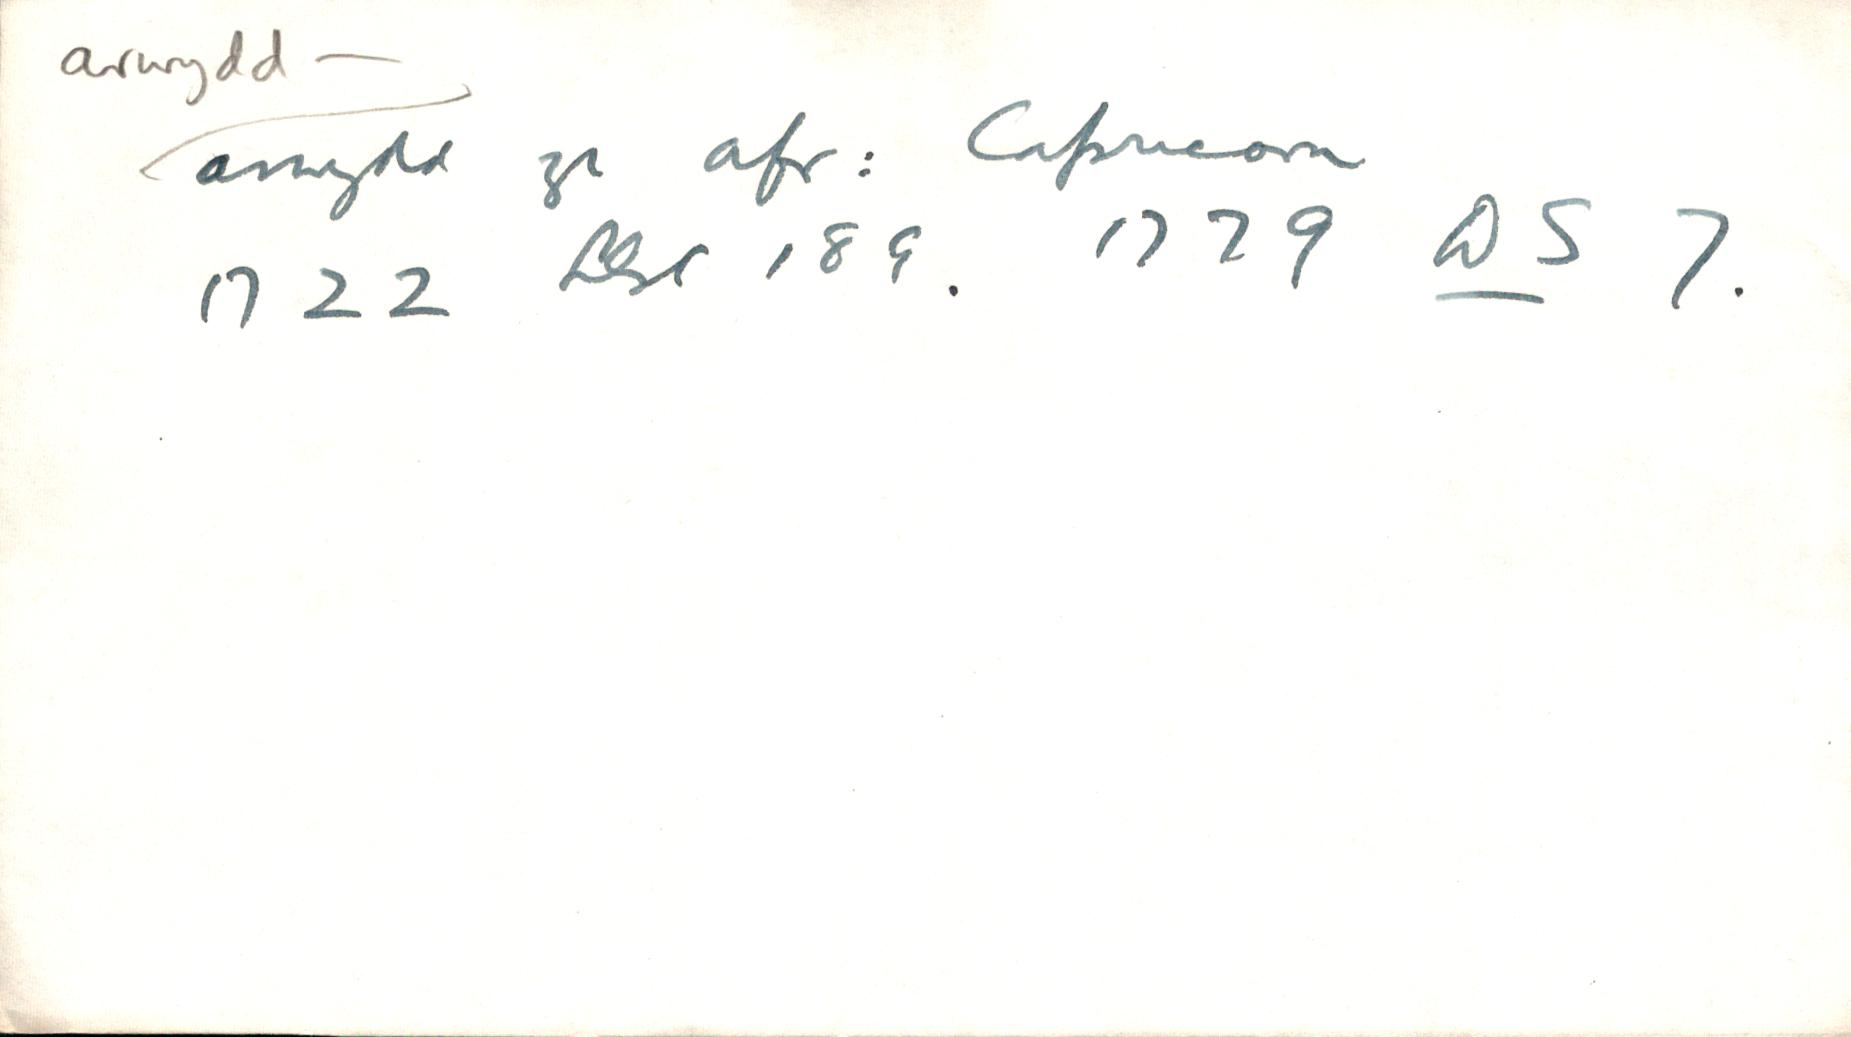 arwydd —
arwydd yr afr: Capricorn
1722 Llst 189. 1779 DS 7.